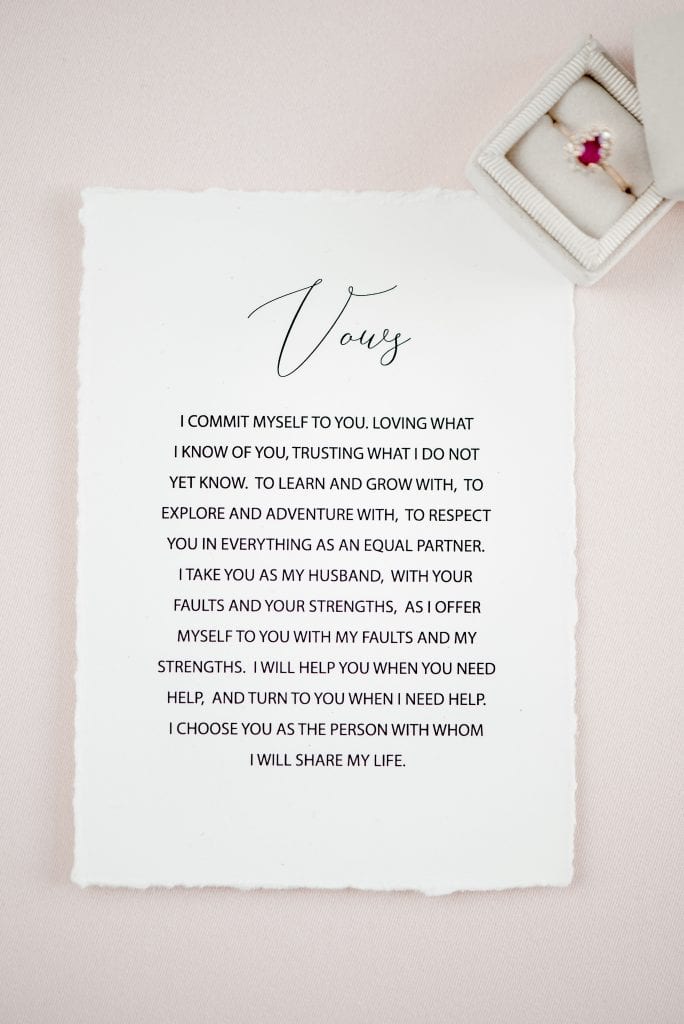 Vows
I COMMIT MYSELF TO YOU. LOVING WHAT
I KNOW OF YOU, TRUSTING WHAT I DO NOT
YET KNOW. TO LEARN AND GROW WITH, TO
EXPLORE AND ADVENTURE WITH, TO RESPECT
YOU IN EVERYTHING AS AN EQUAL PARTNER.
I TAKE YOU AS MY HUSBAND, WITH YOUR
FAULTS AND YOUR STRENGTHS, AS I OFFER
MYSELF TO YOU WITH MY FAULTS AND MY
STRENGTHS. I WILL HELP YOU WHEN YOU NEED
HELP, AND TURN TO YOU WHEN I NEED HELP.
I CHOOSE YOU AS THE PERSON WITH WHOM
I WILL SHARE MY LIFE.